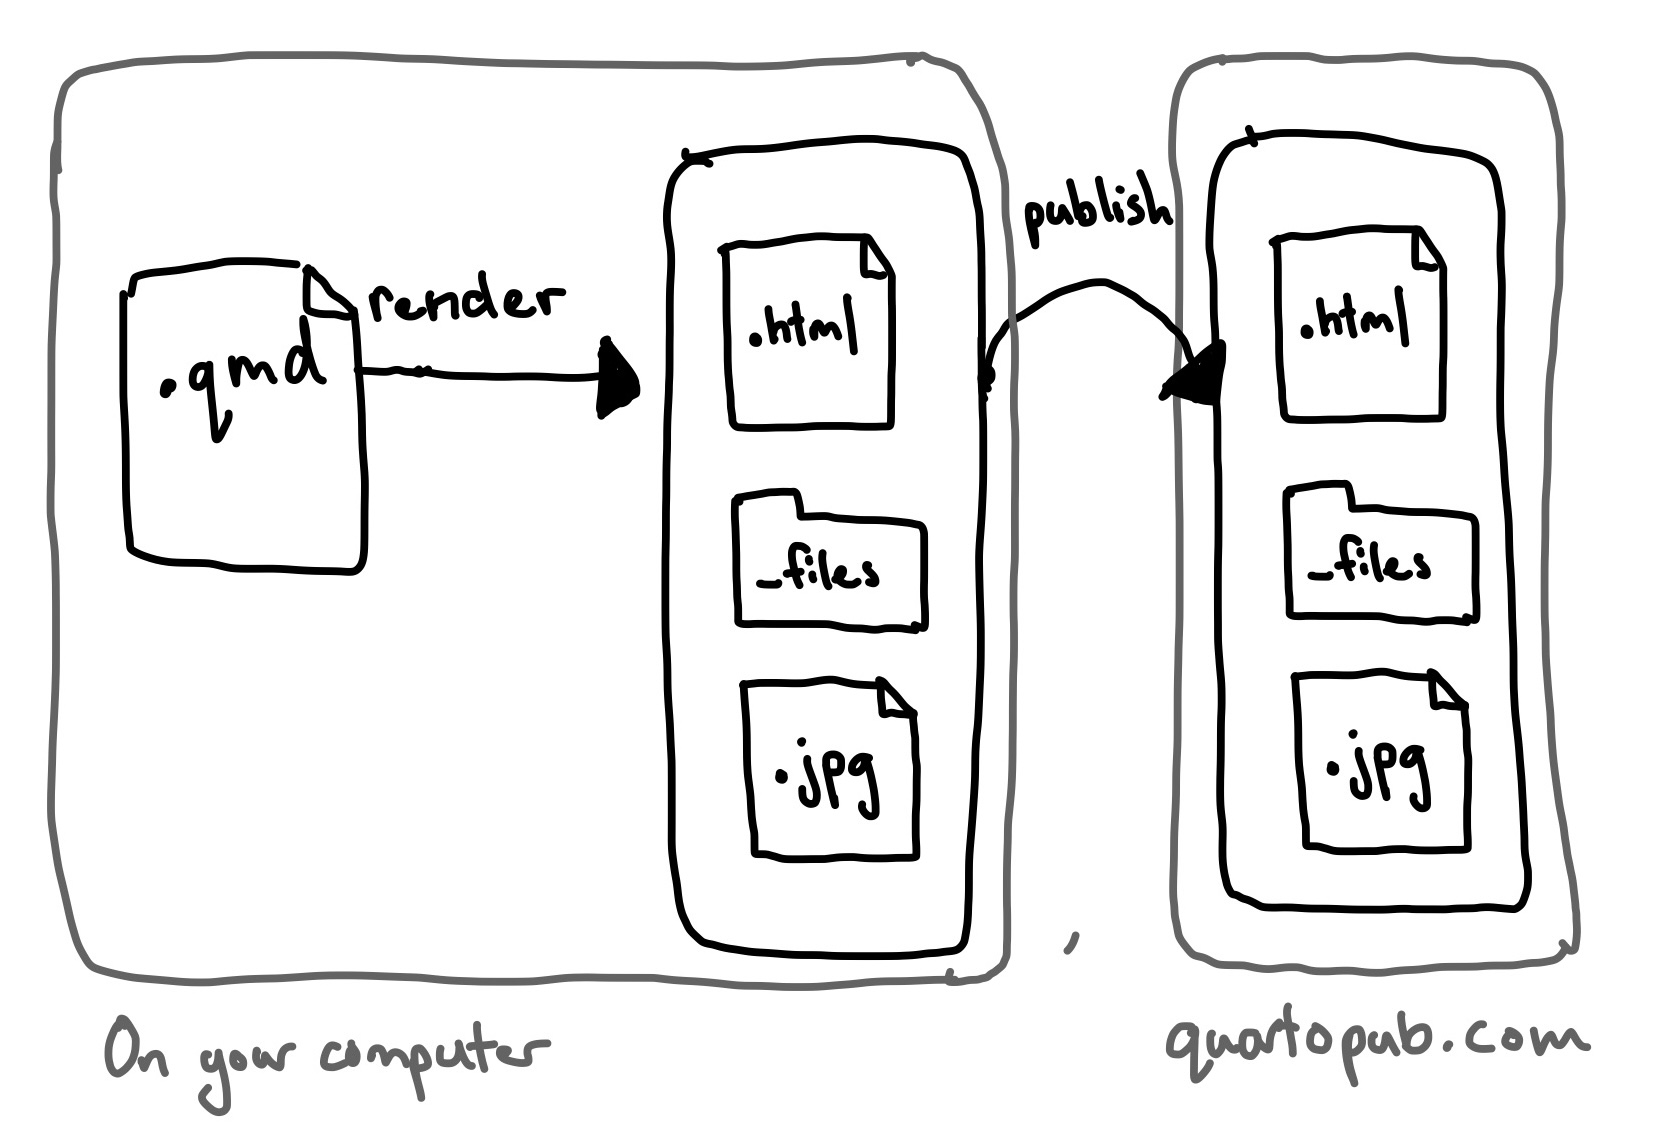 .qmd
render
.html
_files
.jpg
publish
.html
_files
.jpg
On your computer
quartopub.com